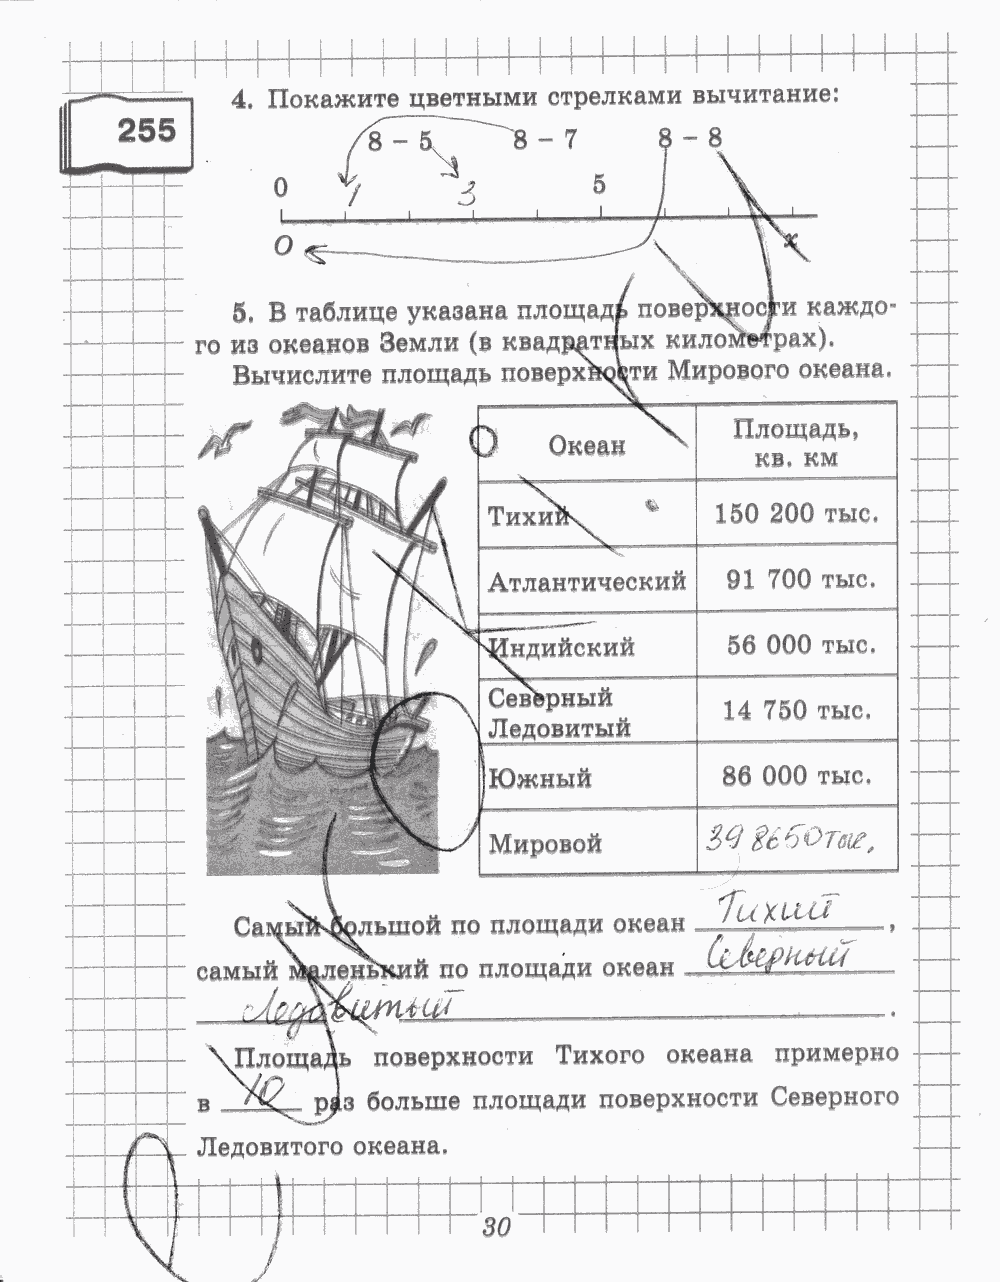 255
4. Покажите цветными стрелками вычитание:
8 – 5 8 – 7 8 – 8
0 1 3 5
0 x
5. В таблице указана площадь поверхности каждо-
го из океанов Земли (в квадратных километрах).
Вычислите площадь поверхности Мирового океана.
Океан Площадь,
кв. км
Тихий 150 200 тыс.
Атлантический 91 700 тыс.
Индийский 56 000 тыс.
Северный
Ледовитый 14 750 тыс.
Южный 86 000 тыс.
Мировой 398650 тыс.
Самый большой по площади океан Тихий ,
самый маленький по площади океан Северный
Ледовитый .
Площадь поверхности Тихого океана примерно
в 10 раз больше площади поверхности Северного
Ледовитого океана.
30